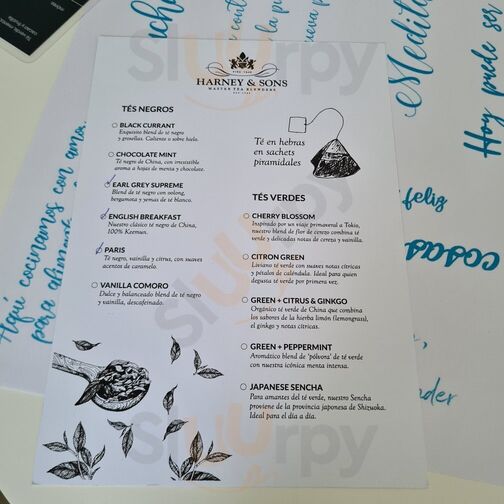 HARNEY & SONS
MASTER TEA BLENDERS
TÉS NEGROS
BLACK CURRANT
Exquisito blend de té negro
y grosellas. Caliente o sobre hielo.
CHOCOLATE MINT
Té negro de China, con irresistible
aroma a hojas de menta y chocolate.
EARL GREY SUPREME
Blend de té negro con oolong,
bergamota y yemas de té blanco.
ENGLISH BREAKFAST
Nuestro clásico té negro de China,
100% Keemun.
PARIS
Té negro, vainilla y citrus, con suaves
acentos de caramelo.
VANILLA COMORO
Dulce y balanceado blend de té negro
y vainilla, descafeinado.
Té en hebras
en sachets
piramidales
TÉS VERDES
CHERRY BLOSSOM
Inspirado por un viaje primaveral a Tokio,
nuestro blend de flor de cerezo combina té
verde y delicadas notas de cereza y vainilla.
CITRON GREEN
Liviano té verde con suaves notas cítricas
y pétalos de caléndula. Ideal para quien
degusta té verde por primera vez.
GREEN + CITRUS & GINKGO
Orgánico té verde de China que combina
los sabores de la hierba limón (lemongrass),
el ginkgo y notas cítricas.
GREEN + PEPPERMINT
Aromático blend de 'pólvora' de té verde
con nuestra icónica menta intensa.
JAPANESE SENCHA
Para amantes del té verde, nuestro Sencha
proviene de la provincia japonesa de Shizuoka.
Ideal para el día a día.
Aquí cocinamos con amor
para
Hoy puede ser
feliz
cosas
Sluurpy
Sluurpy
Sluurpy